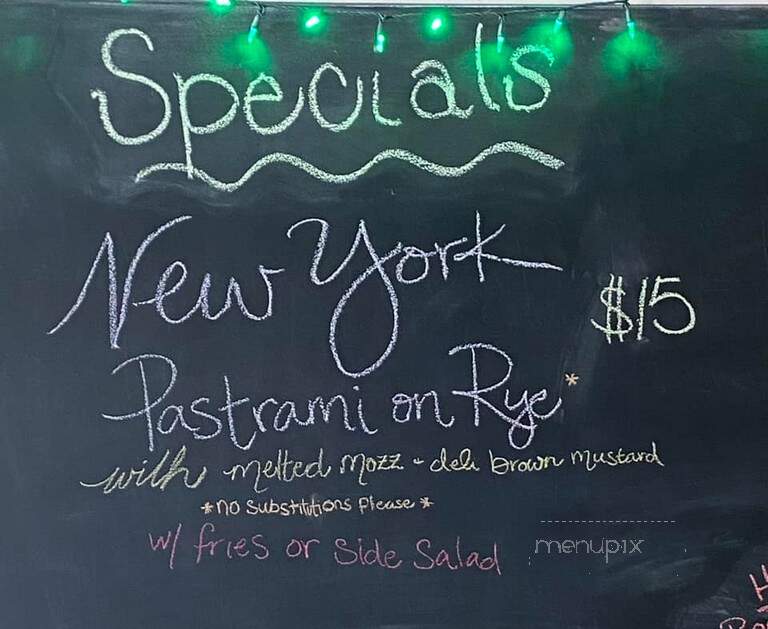 Specials
New York
$15
Pastrami on Rye*
with melted mozz + deli brown mustard
*no substitutions please*
w/ fries or side salad
menupix